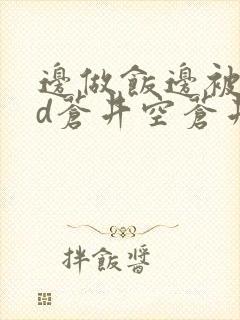 邊做飯邊被
d蒼井空蒼井
拌飯醬